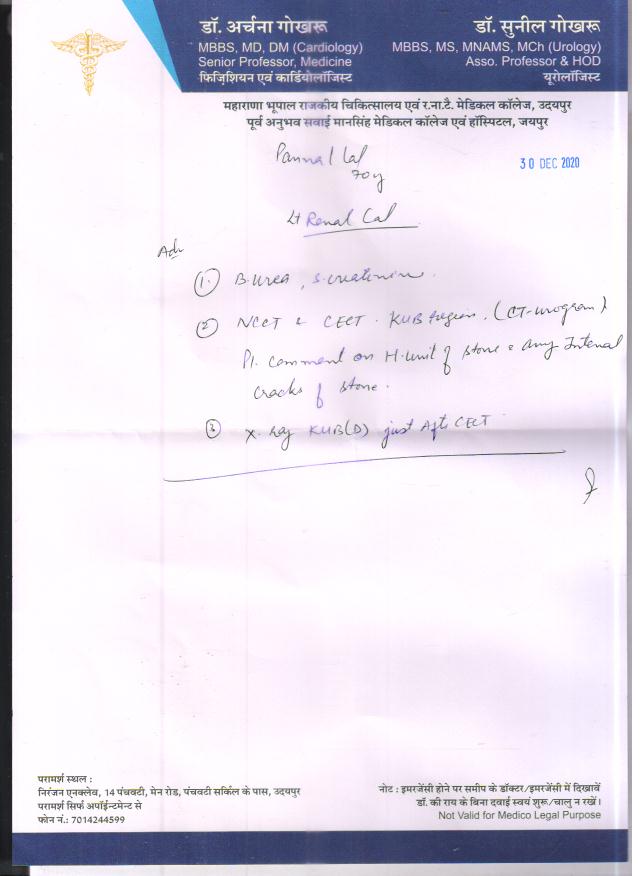 डॉ. अर्चना गोखरू
MBBS, MD, DM (Cardiology)
Senior Professor, Medicine
फिज़िशियन एवं कार्डियोलॉजिस्ट
डॉ. सुनील गोखरू
MBBS, MS, MNAMS, MCh (Urology)
Asso. Professor & HOD
यूरोलॉजिस्ट
महाराणा भूपाल राजकीय चिकित्सालय एवं र.ना.टै. मेडिकल कॉलेज, उदयपुर
पूर्व अनुभव सवाई मानसिंह मेडिकल कॉलेज एवं हॉस्पिटल, जयपुर
Panna Lal
70y
30 DEC 2020
Lt Renal Cal
Adv
(1.) B.urea, S.creatinine.
(2) NCCT & CECT. KUB region. (CT-urogram)
Pl. comment on H.unit of stone & any Internal
cracks of stone.
(3) X-ray KUB(D) just Aft CECT
परामर्श स्थल :
निरंजन एनक्लेव, 14 पंचवटी, मेन रोड, पंचवटी सर्किल के पास, उदयपुर
परामर्श सिर्फ अपॉईन्टमेन्ट से
फोन नं.: 7014244599
नोट : इमरजेंसी होने पर समीप के डॉक्टर/इमरजेंसी में दिखावें
डॉ. की राय के बिना दवाई स्वयं शुरू/चालु न रखें।
Not Valid for Medico Legal Purpose